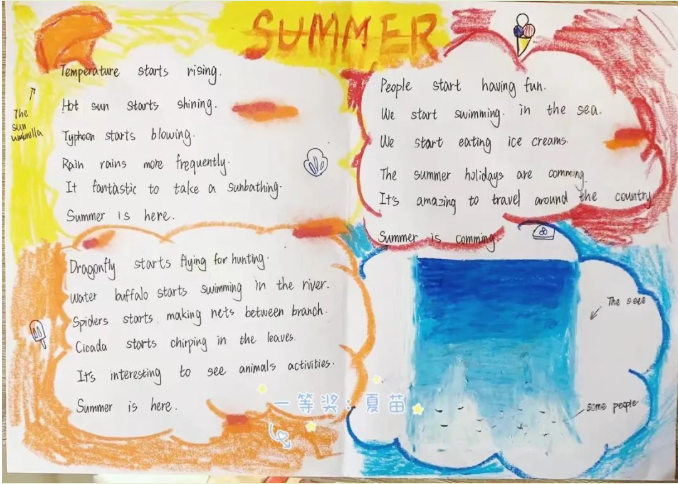 SUMMER
Temperature starts rising.
Hot sun starts shining.
Typhoon starts blowing.
Rain rains more frequently.
It fantastic to take a sunbathing.
Summer is here.
The
sun
umbrella
People start having fun.
We start swimming in the sea.
We start eating ice creams.
The summer holidays are comming.
It's amazing to travel around the country
Summer is comming.
Dragonfly starts flying for hunting.
Water buffalo starts swimming in the river.
Spiders starts making nets between branch.
Cicada starts chirping in the leaves.
It's interesting to see animals activities.
Summer is here.
The sea
some people
一等奖:夏苗